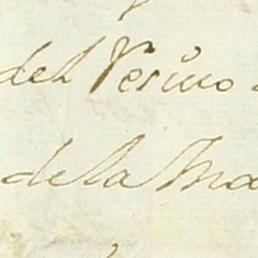 del Vesino
de la Ma